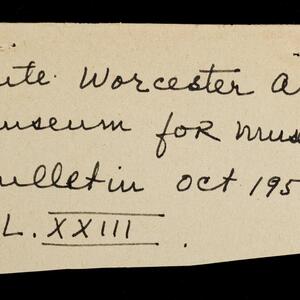 ute Worcester A
useum for mus
ulletin oct 195
L. XXIII.